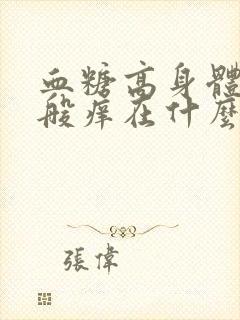 血糖高身體
般痒在什麼
張偉